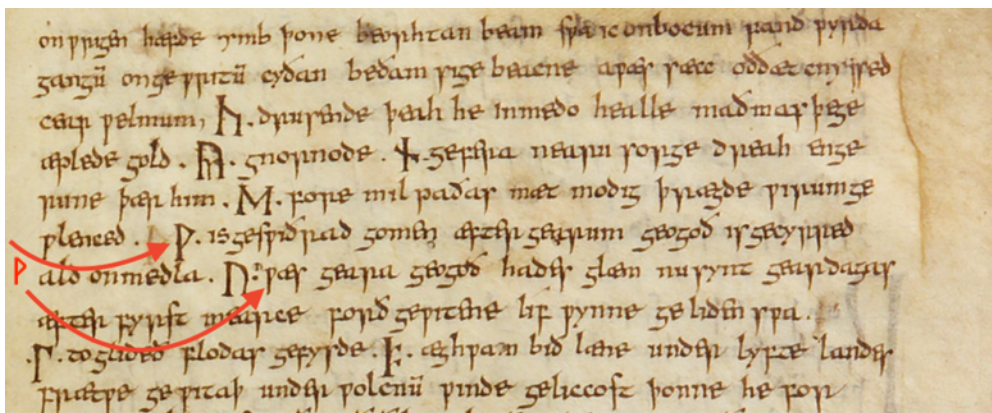 onƿrigen hæfde ymb þone beorhtan beam sƿa ic onbocum fand ƿyrda
gangū ongeƿritū cyðan beðam sige beacne aƿæs sæcc oððæt cnyssed
cear ƿelmum, ᚳ. drusende þeah he inmedo healle maðmas þege
æplede gold . ᚣ. gnornode . ᚾ. gefera nearu sorge dreah enge
rune þær him . ᛖ. fore mil paðas mæt modig þrægde ƿirumge
ƿlenced . ᚹ. is gesƿiðrad gomen æfter gearum geogoð is gecyrred
ᚹ
ald onmedla . ᚢ. ƿæs geara geogoð hades glæm nu synt geardagas
æfter fyrst mearce forð geƿitene lif ƿynne ge liden sƿa .
.ᛚ. toglideð flodas gefysde . ᚠ. æghƿam bið læne under lyfte landes
frætƿe ge ƿitaþ under ƿolcnū ƿinde geliccost þonne he for